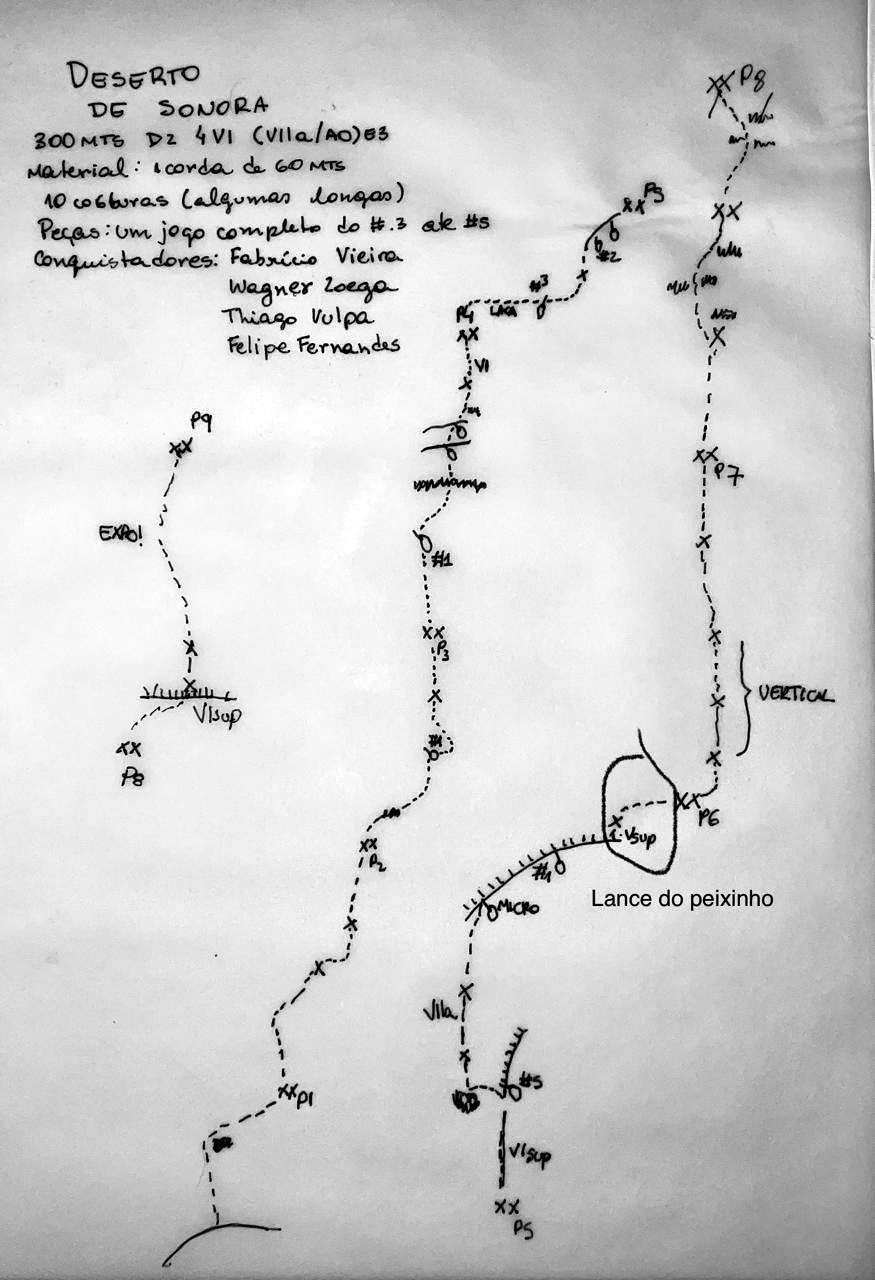 DESERTO
DE SONORA
300 MTS D2 4 VI (VIIa/A0) E3
Material: 1 corda de 60 MTS
10 costuras (algumas longas)
Peças: um jogo completo do #.3 até #5
Conquistadores: Fabrício Vieira
Wagner Zoega
Thiago Vulpa
Felipe Fernandes
P8
P5
#2
#3
LACA
P4
VI
P9
EXPO!
#1
P3
P7
VERTICAL
VIsup
P8
#1
P2
P6
VSUP
#4
Lance do peixinho
MICRO
VIIa
#5
P1
VISUP
P5